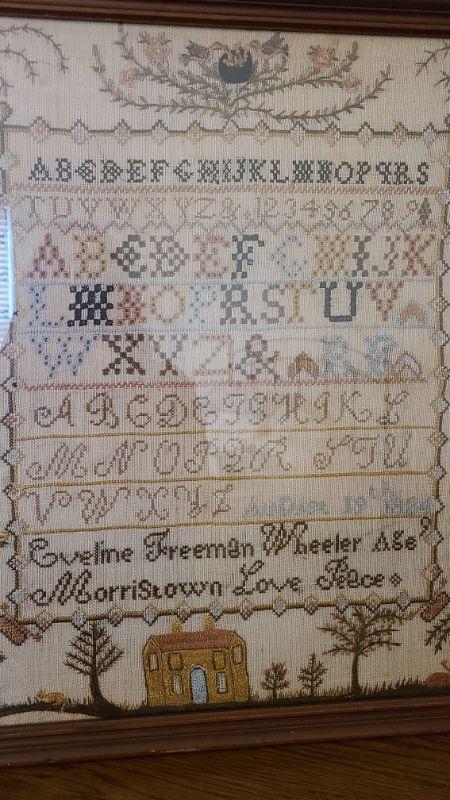 ABCDEFGHIJKLMNOPQRS
TUVWXYZ&.123456789
ABCDEFGHIJK
LMNOPRSTUV
WXYZ&
ABCDEFGHIKL
MNOPQRSTU
VWXYZ
Eveline Freeman Wheeler Age 9
Morristown Love Peace